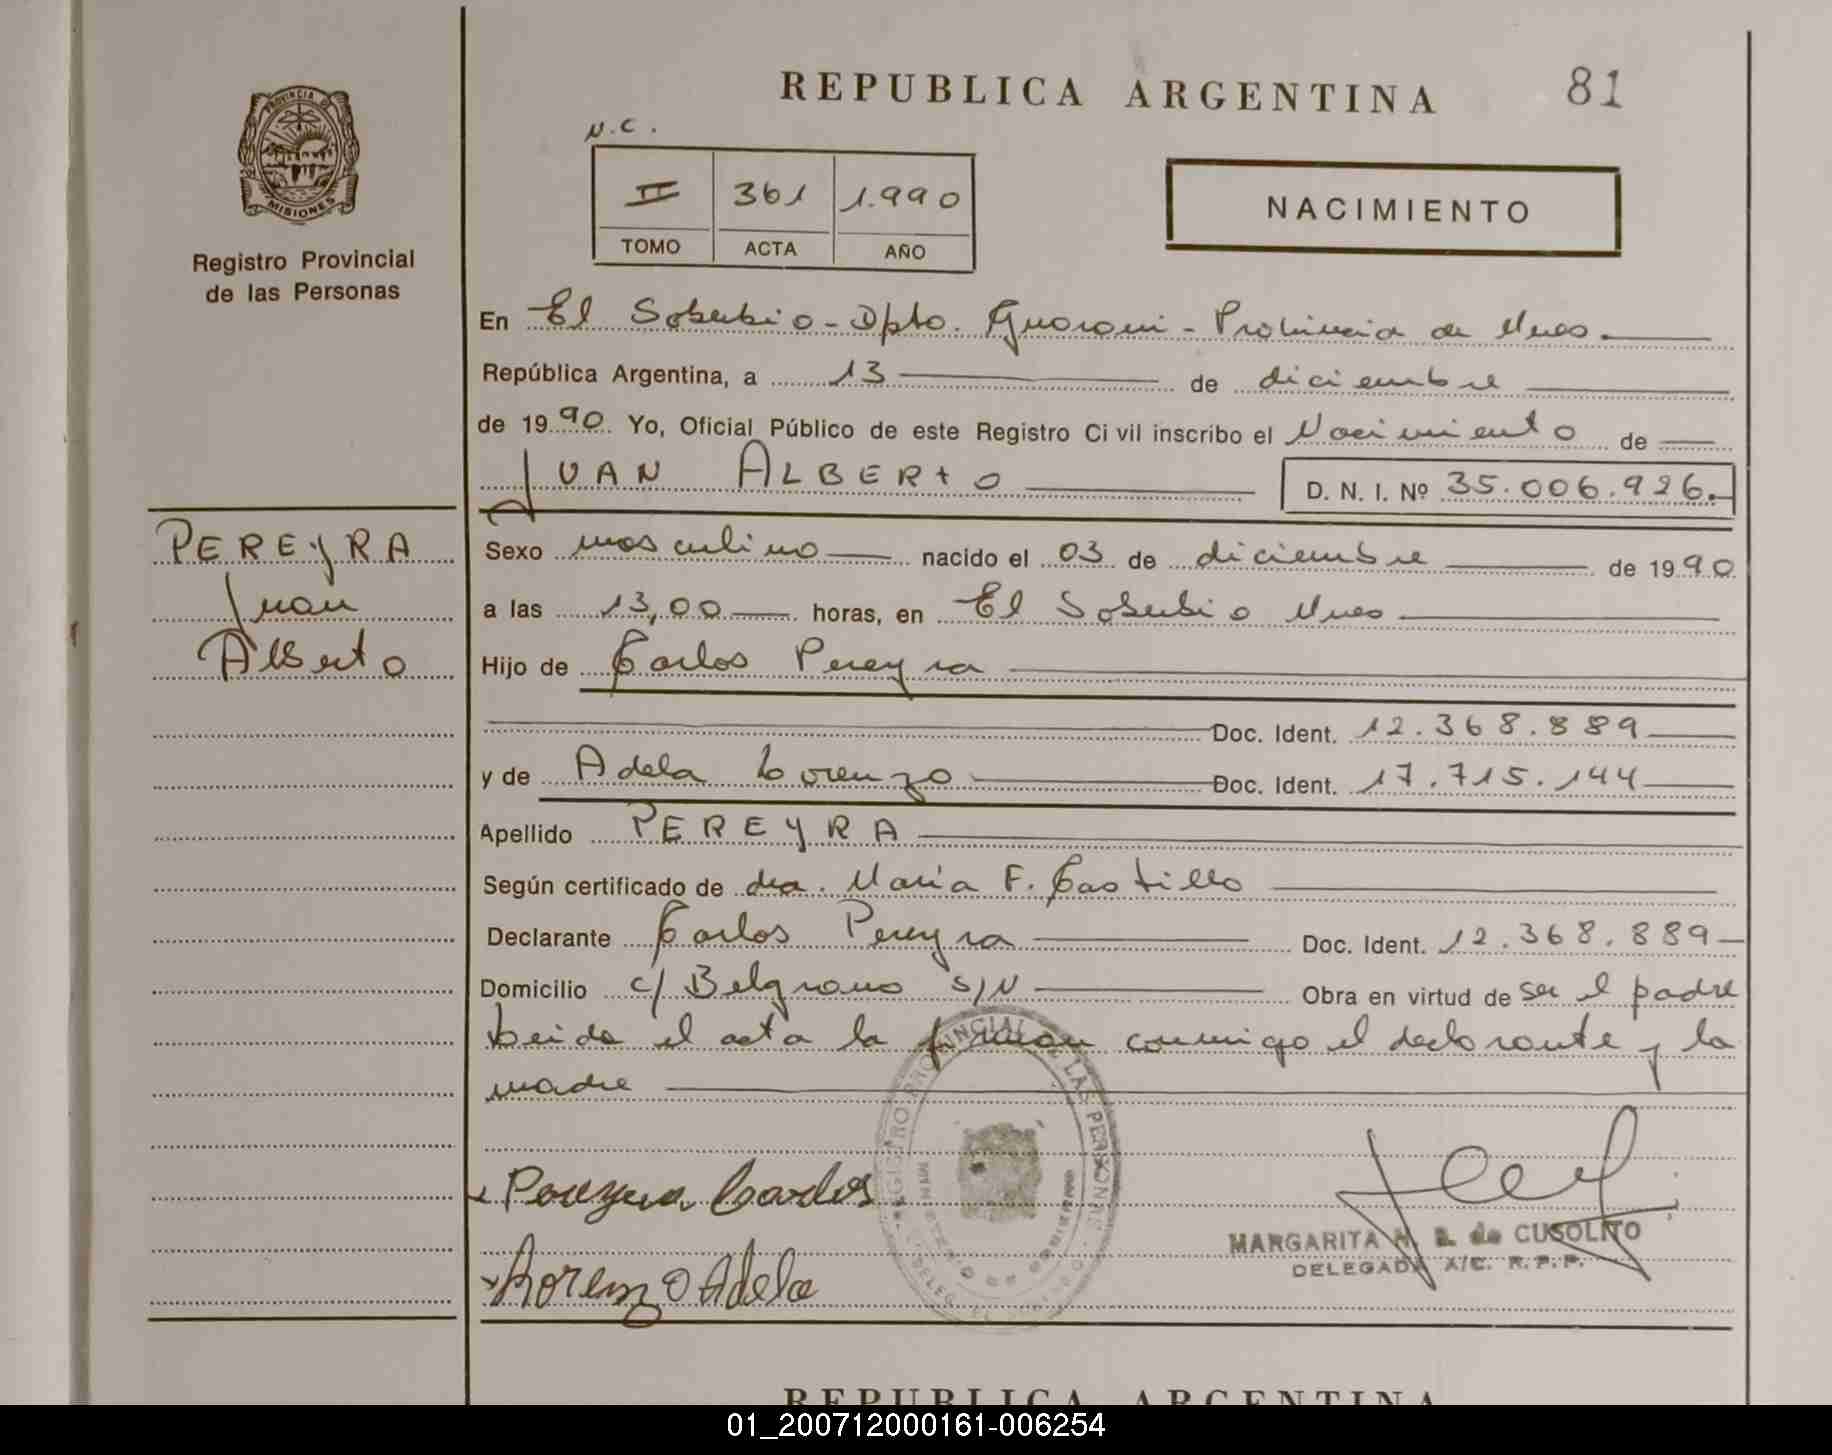 REPUBLICA ARGENTINA
81
PROVINCIA DE
MISIONES
Registro Provincial
de las Personas
N.C.
II 361 1.990
TOMO ACTA AÑO
NACIMIENTO
En El Soberbio - Dpto. Guarani - Provincia de Mnes.
República Argentina, a 13 de diciembre
de 1990 Yo, Oficial Público de este Registro Civil inscribo el Nacimiento de
JUAN ALBERTO D. N. I. Nº 35.006.926.
PEREYRA
Juan
Alberto
Sexo masculino nacido el 03 de diciembre de 1990
a las 13,00 horas, en El Soberbio Mnes
Hijo de Carlos Pereyra
Doc. Ident. 12.368.889
y de Adela Lorenzo Doc. Ident. 17.715.144
Apellido PEREYRA
Según certificado de dra. Maria F. Castillo
Declarante Carlos Pereyra Doc. Ident. 12.368.889
Domicilio c/ Belgrano S/N Obra en virtud de ser el padre
Leida el acta la firman conmigo el declarante y la
madre
REGISTRO PROVINCIAL DE LAS PERSONAS
MINISTERIO DE GOBIERNO
Pereyra Carlos
MARGARITA de CUSOLITO
DELEGADA A/C. R.P.P.
Lorenzo Adela
REPUBLICA ARGENTINA
01_200712000161-006254